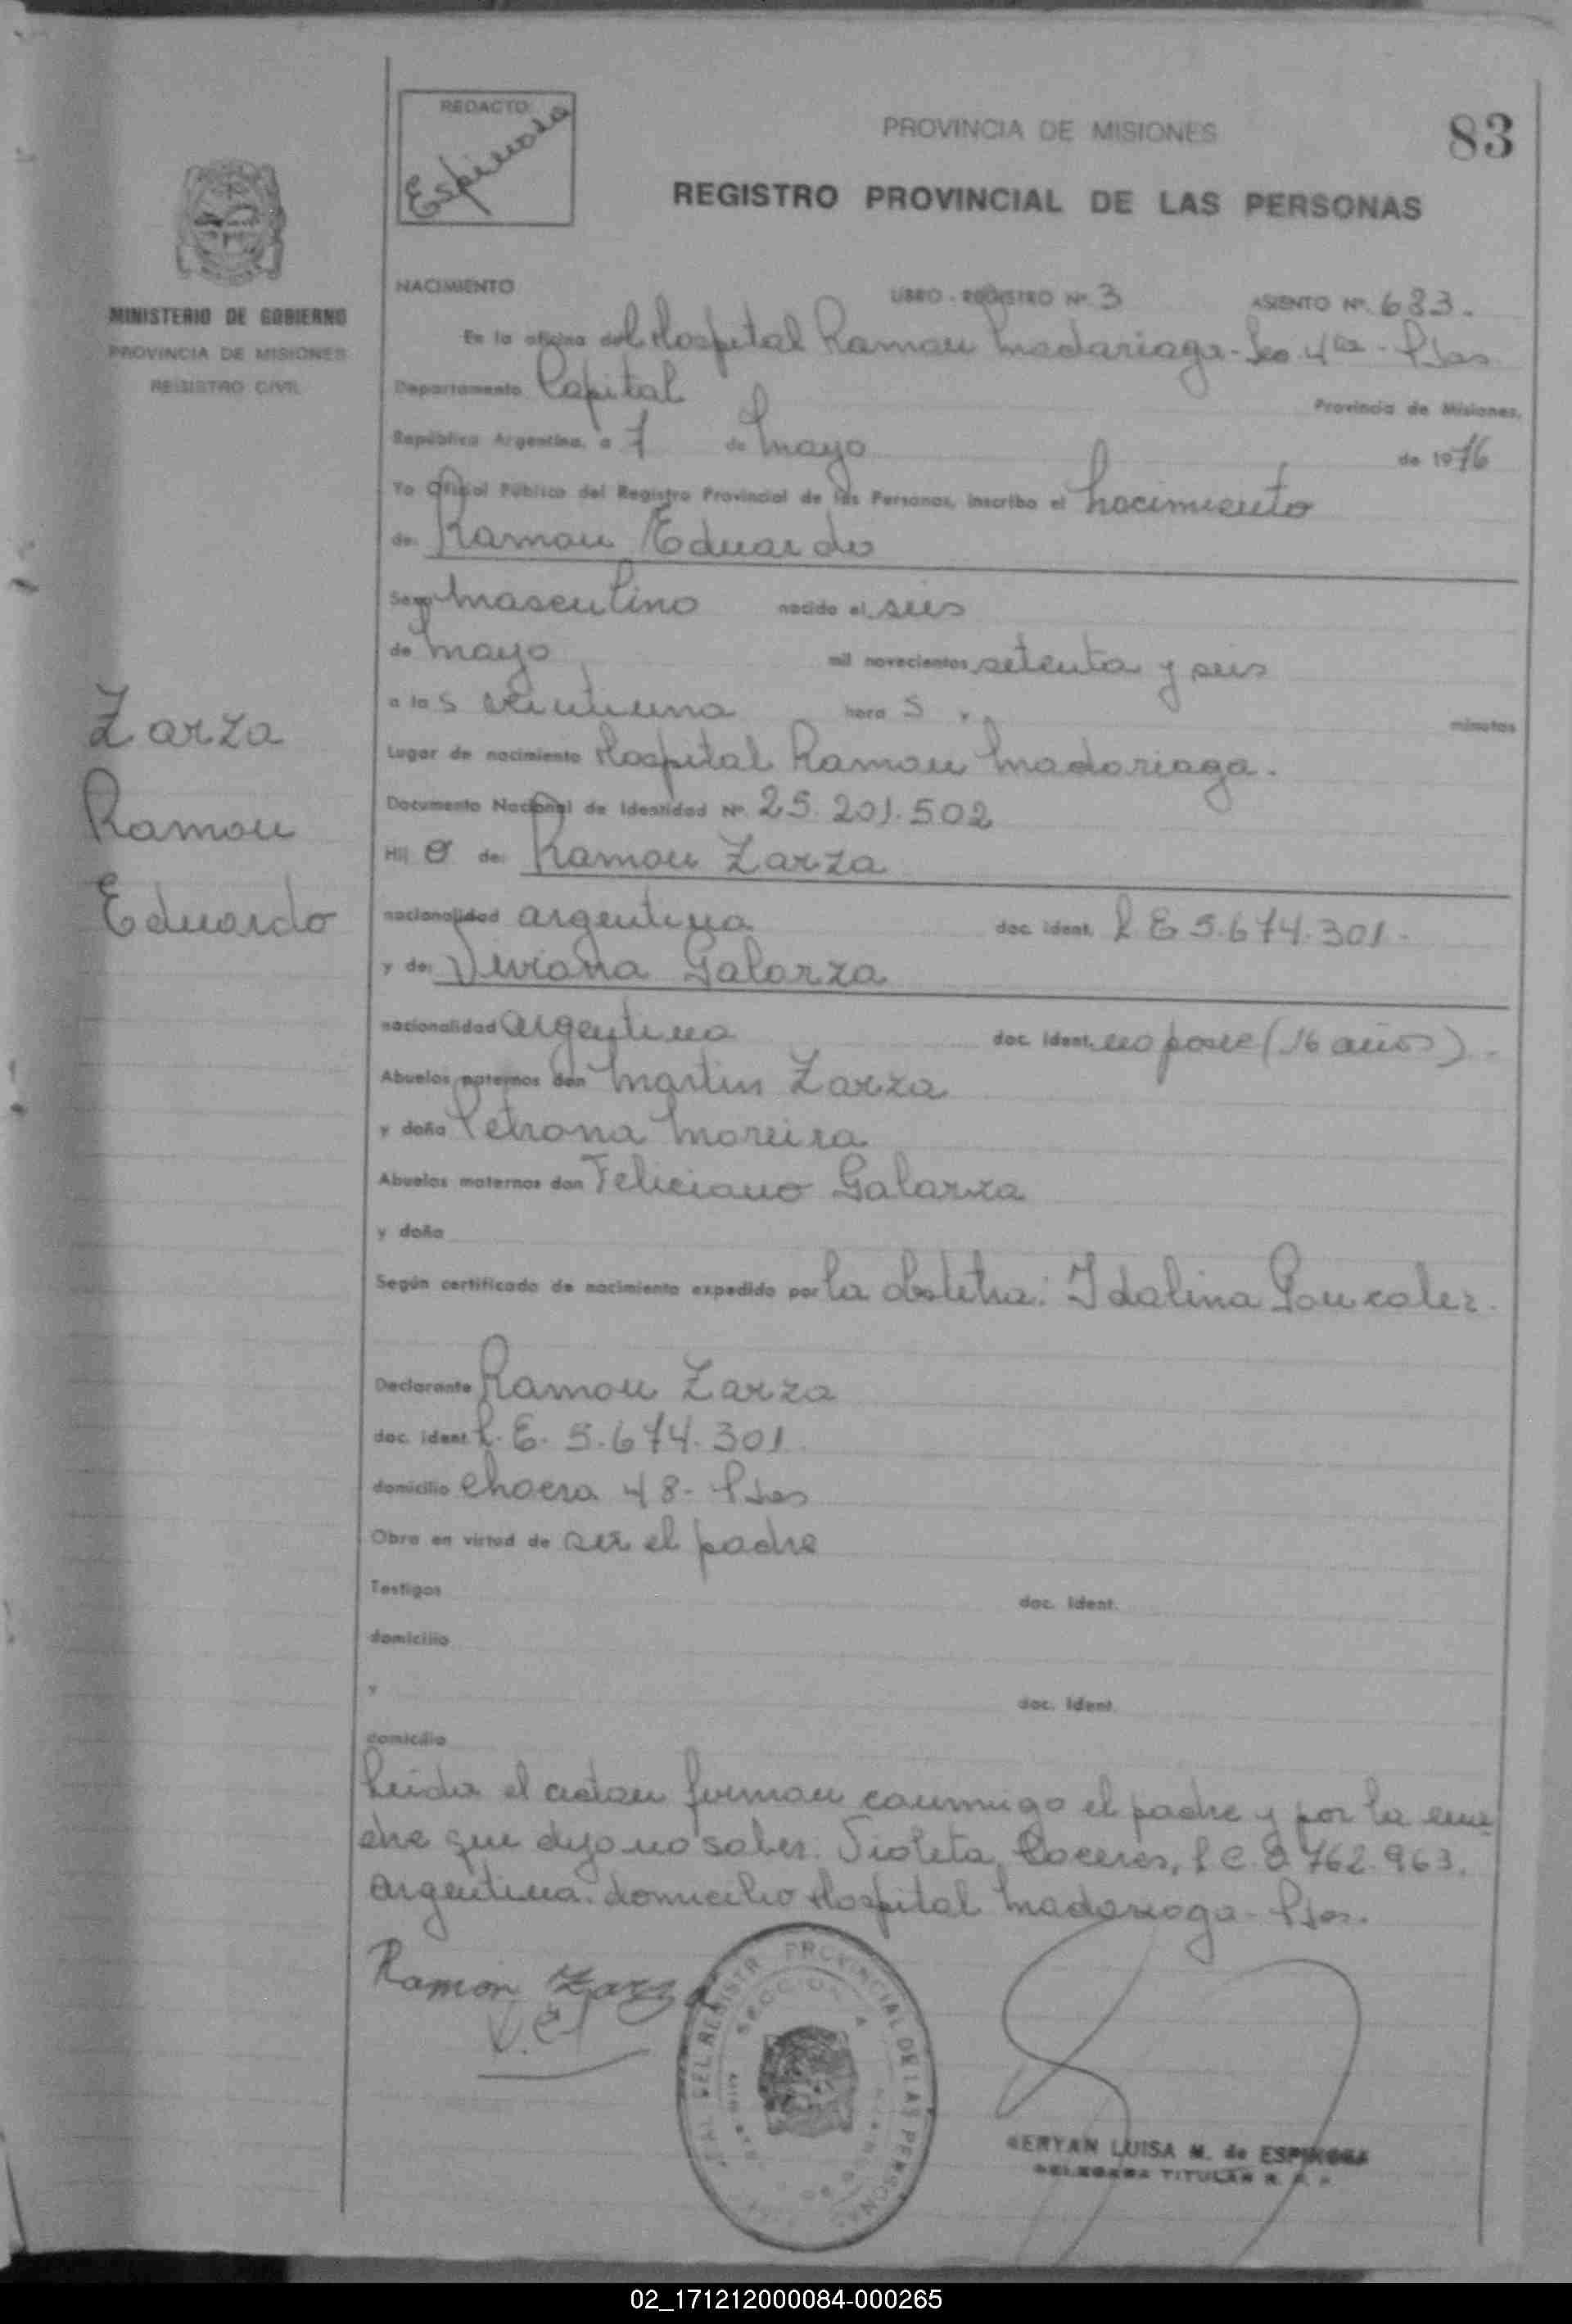 REDACTO:
Espinosa
PROVINCIA DE MISIONES
83
REGISTRO PROVINCIAL DE LAS PERSONAS
MINISTERIO DE GOBIERNO
PROVINCIA DE MISIONES
REGISTRO CIVIL
NACIMIENTO LIBRO - REGISTRO Nº. 3 ASIENTO Nº. 683.
En la oficina del Hospital Ramon Madariaga - Sec 4ta - Pdas
Departamento Capital Provincia de Misiones,
República Argentina, a 7 de mayo de 1976
Yo Oficial Público del Registro Provincial de las Personas, inscribo el nacimiento
de: Ramon Eduardo
Sexo masculino nacido el seis
de mayo mil novecientos setenta y seis
a las veintiuna horas y minutos
Lugar de nacimiento Hospital Ramon Madariaga.
Documento Nacional de Identidad Nº. 25.201.502
Hijo de: Ramon Zarza
nacionalidad argentina doc. ident. L E 5.674.301.
y de: Viviana Galarza
nacionalidad argentina doc. ident. no posee (16 años).
Abuelos paternos don Martin Zarza
y doña Petrona Moreira
Abuelos maternos don Feliciano Galarza
y doña
Según certificado de nacimiento expedido por la obstetra: Idalina Gonzalez.
Declarante Ramon Zarza
doc. ident. L. E. 5.674.301.
domicilio chacra 48 - Pdas
Obra en virtud de ser el padre
Testigos doc. ident.
domicilio
y doc. ident.
domicilio
Zarza
Ramon
Eduardo
Leida el acta firman conmigo el padre y por la ma
dre que dijo no saber. Violeta Caceres, L C 2.762.963.
argentina. domicilio Hospital Madariaga - Pdas.
Ramon Zarza
PROVINCIAL DE LAS PERSONAS
SECCION
LUISA M. de ESPINOSA
TITULAR
02_171212000084-000265